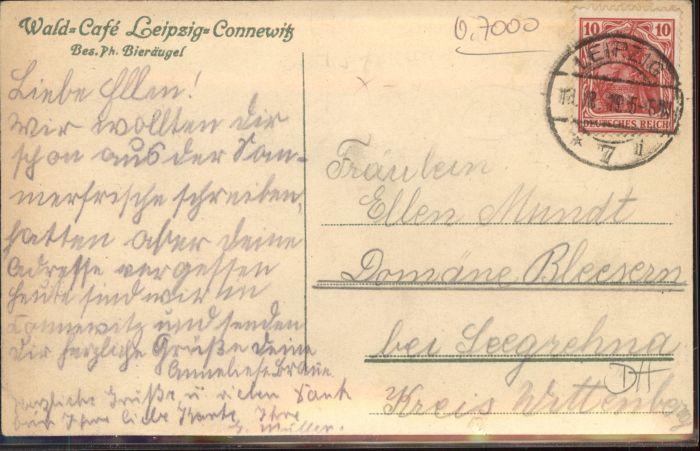 Wald-Café Leipzig-Connewitz
Bes. Ph. Bieräugel
0,7000
10 10
DEUTSCHES REICH
LEIPZIG
* 7
Liebe Ellen!
Wir wollten dir
schon aus der Som-
merfrische schreiben,
hatten aber deine
Adresse vergessen
heute sind wir in
Connewitz und senden
dir herzliche Grüße deine
Anneliese Braune.
Herzliche Grüße u. vielen Dank
für Ihre liebe Karte, Ihre
Müller.
Fräulein
Ellen Mundt
Domäne Bleesern
bei Seegrehna
Kreis Wittenberg